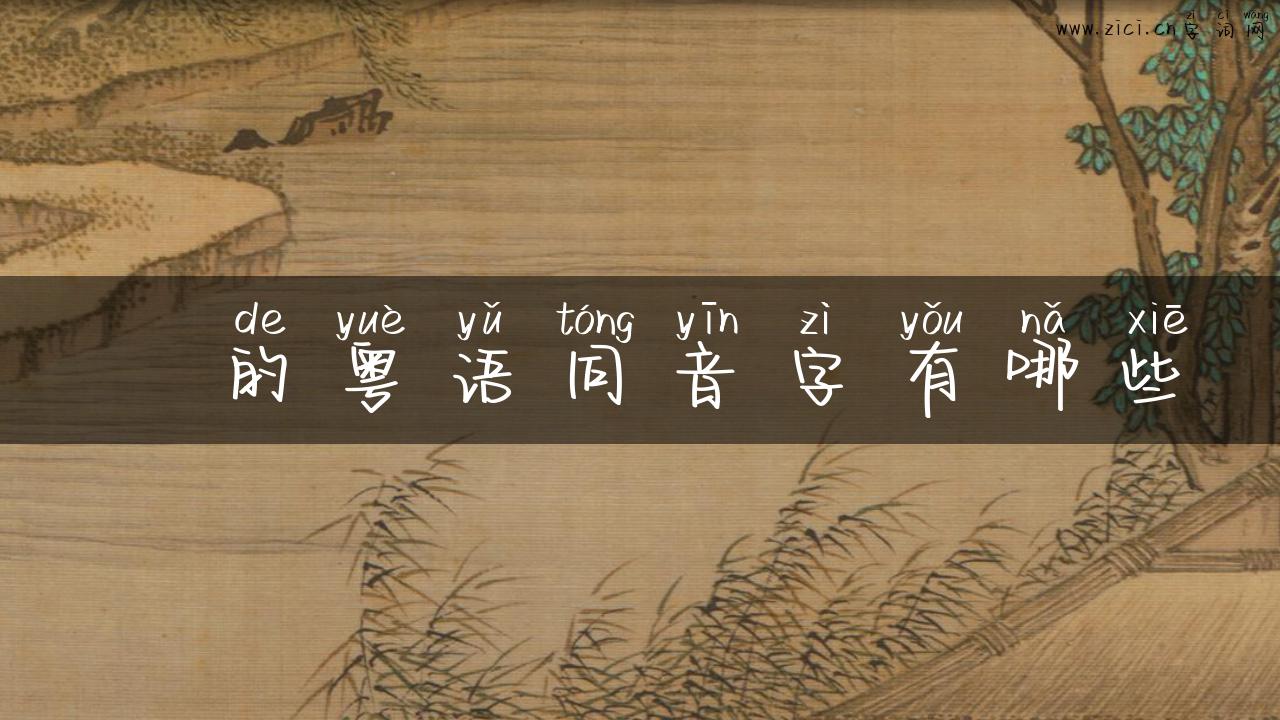 zì cí wǎng
www.zici.cn字词网
de yuè yǔ tóng yīn zì yǒu nǎ xiē
的粤语同音字有哪些